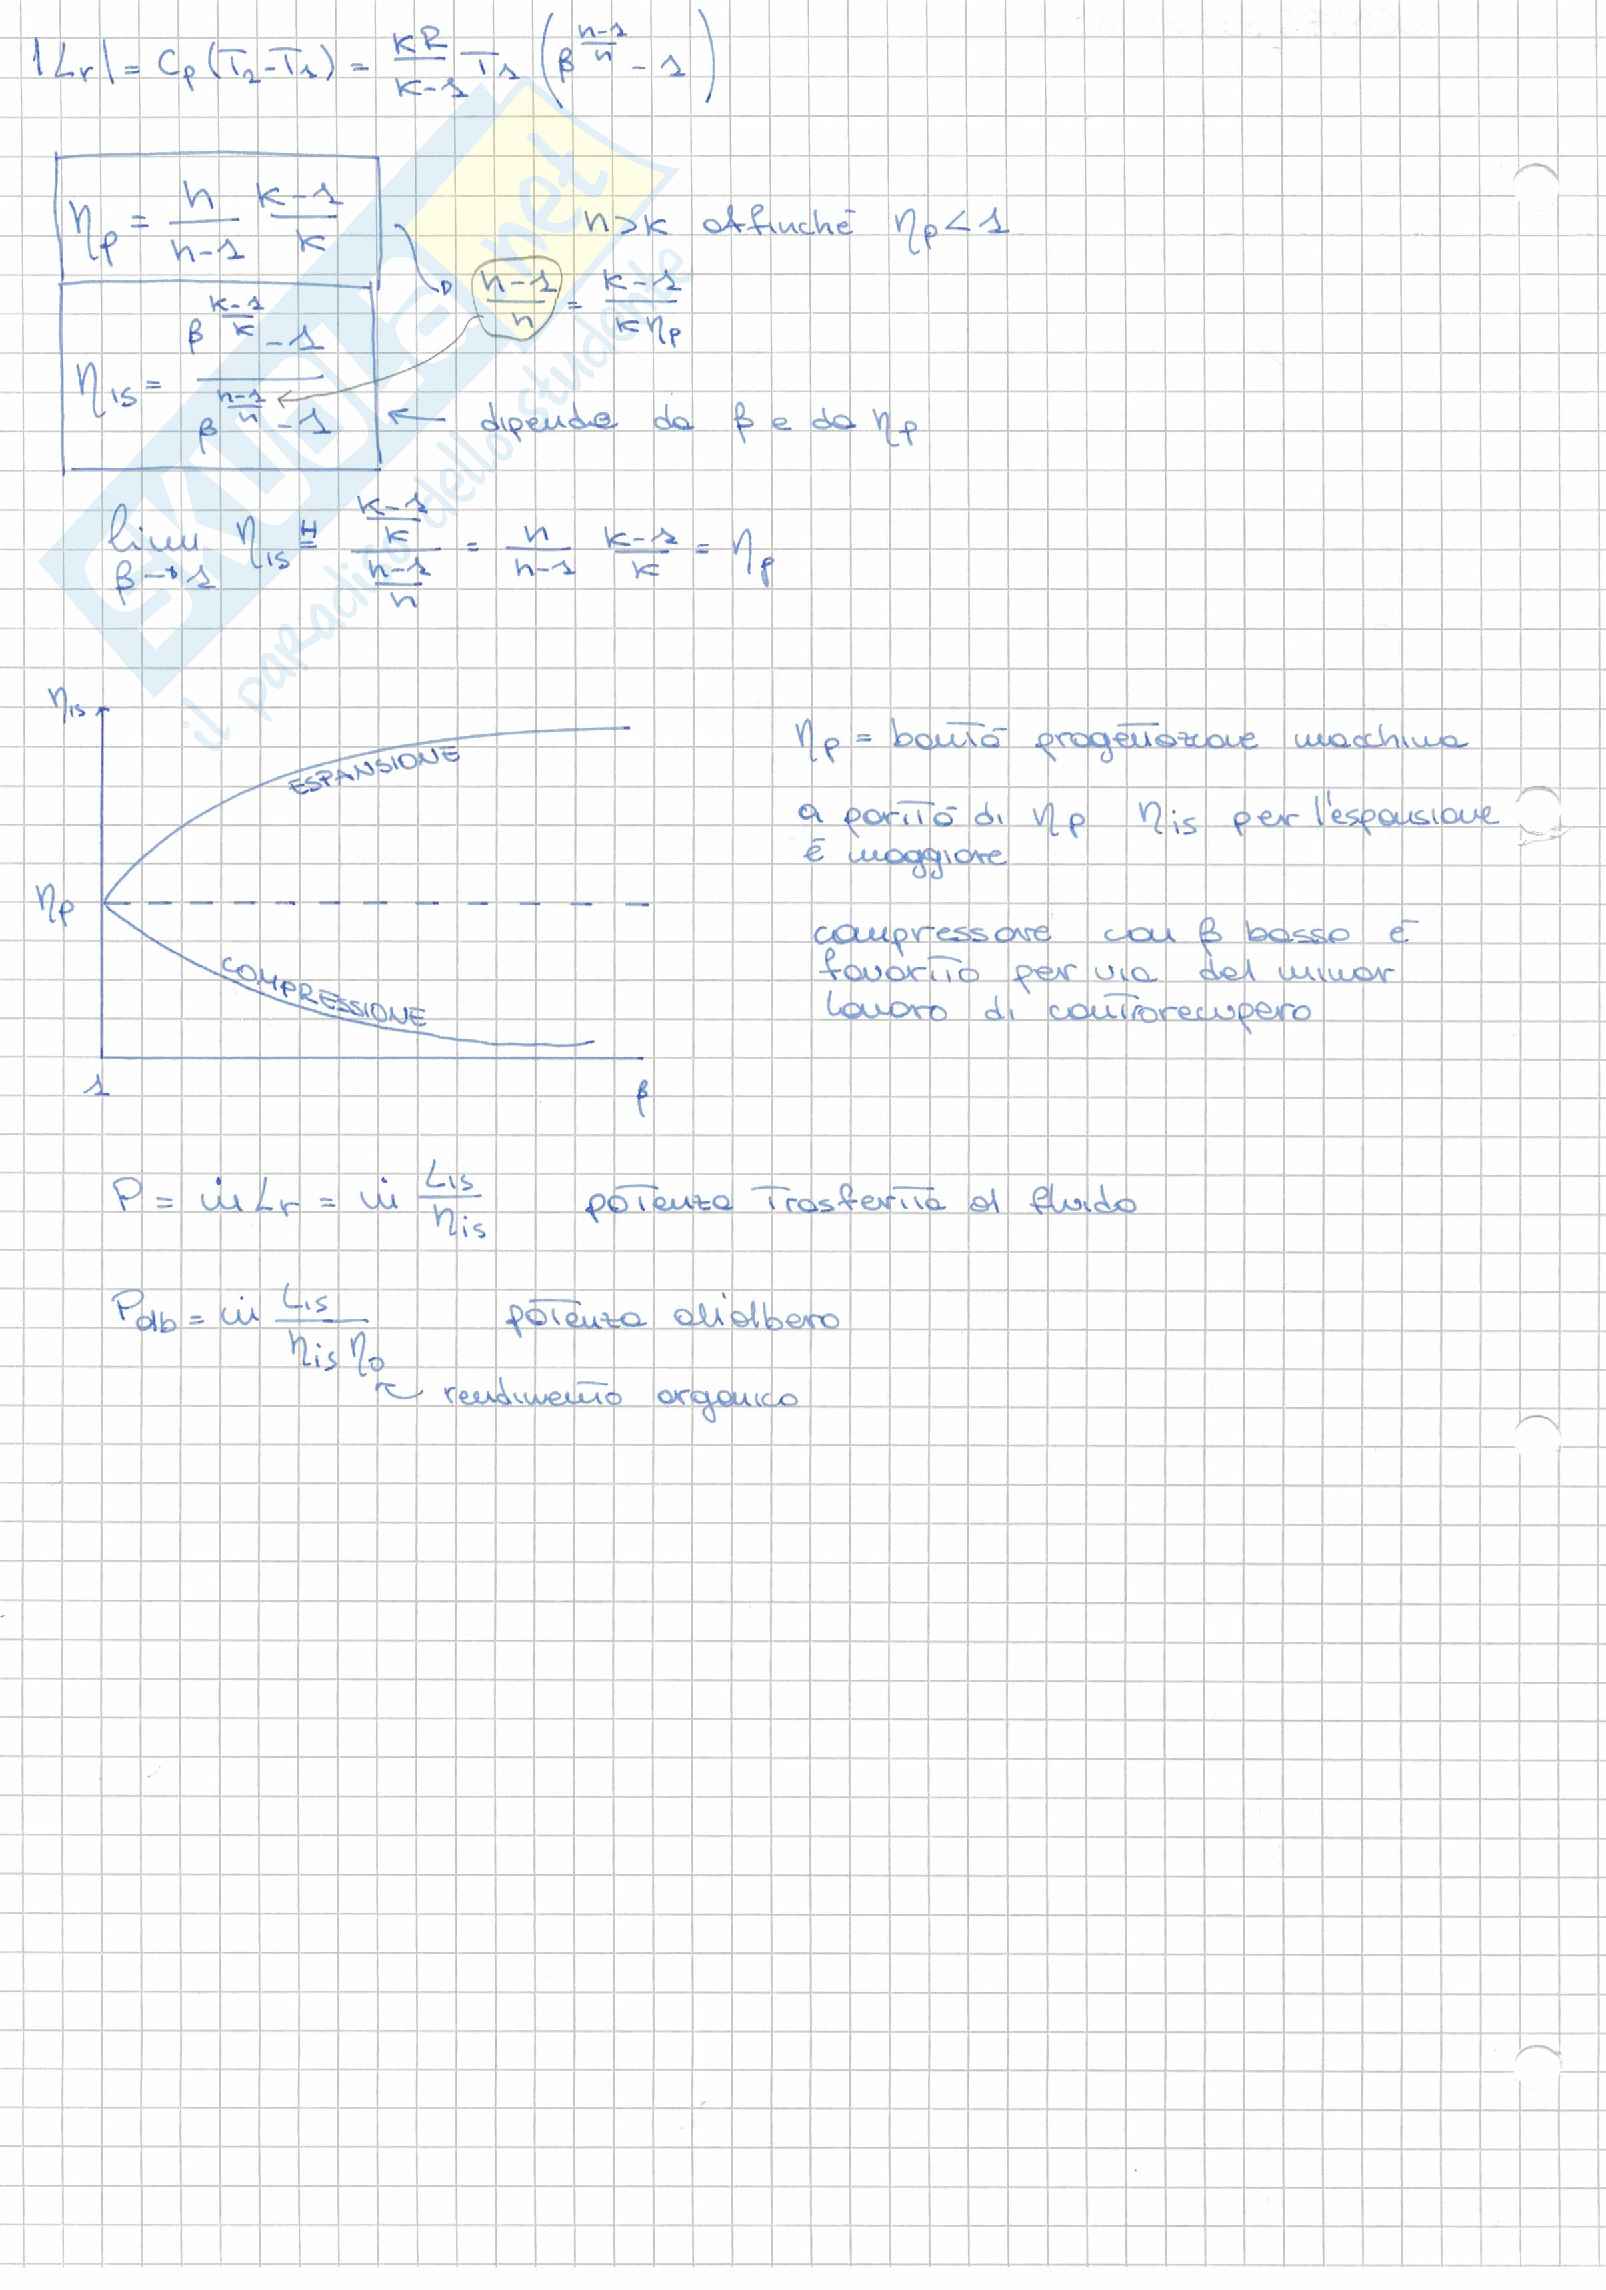 |Lr| = Cp (T2 - T1) = KR/(K-1) T1 (β^((n-1)/n) - 1)
ηp = n/(n-1) (K-1)/K
n > K affinché ηp < 1
(n-1)/n = (K-1)/(K ηp)
ηis = (β^((K-1)/K) - 1)/(β^((n-1)/n) - 1) ← dipende da β e da ηp
lim β→1 ηis =(H) ((K-1)/K)/((n-1)/n) = n/(n-1) (K-1)/K = ηp
ηis
ESPANSIONE
ηp
COMPRESSIONE
1
β
ηp = bontà progettazione macchina
a parità di ηp ηis per l'espansione
è maggiore
compressore con β basso è
favorito per via del minor
lavoro di controrecupero
P = ṁ Lr = ṁ Lis/ηis potenza trasferita al fluido
Palb = ṁ Lis/(ηis ηo) potenza all'albero
rendimento organico
SKUOLA.net
il paradiso dello studente